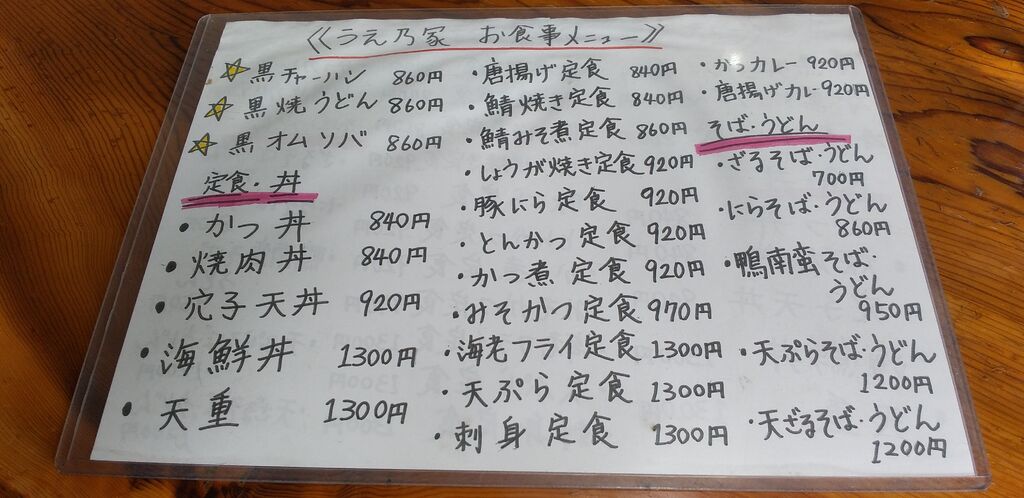 《うえ乃家 お食事メニュー》
☆黒チャーハン 860円
☆黒焼うどん 860円
☆黒オムソバ 860円
定食・丼
・かつ丼 840円
・焼肉丼 840円
・穴子天丼 920円
・海鮮丼 1300円
・天重 1300円
・唐揚げ定食 840円
・鯖焼き定食 840円
・鯖みそ煮定食 860円
・しょうが焼き定食 920円
・豚にら定食 920円
・とんかつ定食 920円
・かつ煮定食 920円
・みそかつ定食 970円
・海老フライ定食 1300円
・天ぷら定食 1300円
・刺身定食 1300円
・かつカレー 920円
・唐揚げカレー 920円
そば・うどん
・ざるそば・うどん
700円
・にらそば・うどん
860円
・鴨南蛮そば・
うどん
950円
・天ぷらそば・うどん
1200円
・天ざるそば・うどん
1200円